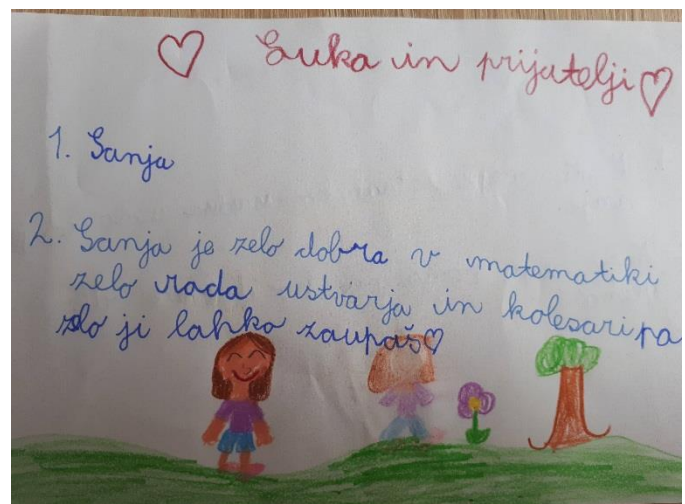 ♡ Luka in prijatelji ♡
1. Lanja
2. Lanja je zelo dobra v matematiki
zelo rada ustvarja in kolesari pa
zelo ji lahko zaupaš♡